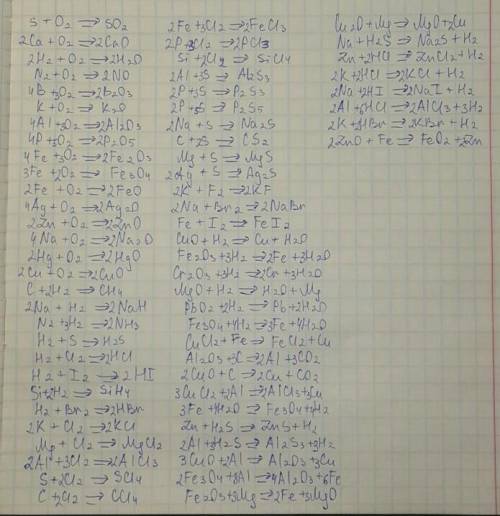 S + O2 ⇒ SO2
2Ca + O2 ⇒ 2CaO
2H2 + O2 ⇒ 2H2O
N2 + O2 ⇒ 2NO
4B + 3O2 ⇒ 2B2O3
K + O2 ⇒ K2O
4Al + 3O2 ⇒ 2Al2O3
4P + 5O2 ⇒ 2P2O5
4Fe + 3O2 ⇒ 2Fe2O3
3Fe + 2O2 ⇒ Fe3O4
2Fe + O2 ⇒ 2FeO
4Ag + O2 ⇒ 2Ag2O
2Zn + O2 ⇒ 2ZnO
4Na + O2 ⇒ 2Na2O
2Hg + O2 ⇒ 2HgO
2Cu + O2 ⇒ 2CuO
C + 2H2 ⇒ CH4
2Na + H2 ⇒ 2NaH
N2 + 3H2 ⇒ 2NH3
H2 + S ⇒ H2S
H2 + Cl2 ⇒ 2HCl
H2 + I2 ⇒ 2HI
Si + 2H2 ⇒ SiH4
H2 + Br2 ⇒ 2HBr
2K + Cl2 ⇒ 2KCl
Mg + Cl2 ⇒ MgCl2
2Al + 3Cl2 ⇒ 2AlCl3
S + 2Cl2 ⇒ SCl4
C + 2Cl2 ⇒ CCl4
2Fe + 3Cl2 ⇒ 2FeCl3
2P + 3Cl2 ⇒ 2PCl3
Si + 2Cl2 ⇒ SiCl4
2Al + 3S ⇒ Al2S3
2P + 3S ⇒ P2S3
2P + 5S ⇒ P2S5
2Na + S ⇒ Na2S
C + 2S ⇒ CS2
Mg + S ⇒ MgS
2Ag + S ⇒ Ag2S
2K + F2 ⇒ 2KF
2Na + Br2 ⇒ 2NaBr
Fe + I2 ⇒ FeI2
CuO + H2 ⇒ Cu + H2O
Fe2O3 + 3H2 ⇒ 2Fe + 3H2O
Cr2O3 + 3H2 ⇒ 2Cr + 3H2O
MgO + H2 ⇒ H2O + Mg
PbO2 + 2H2 ⇒ Pb + 2H2O
Fe3O4 + 4H2 ⇒ 3Fe + 4H2O
CuCl2 + Fe ⇒ FeCl2 + Cu
Al2O3 + 3C ⇒ 2Al + 3CO2
2CuO + C ⇒ 2Cu + CO2
3CuCl2 + 2Al ⇒ 2AlCl3 + 3Cu
3Fe + 4H2O ⇒ Fe3O4 + 4H2
Zn + H2S ⇒ ZnS + H2
2Al + 3H2S ⇒ Al2S3 + 3H2
3CuO + 2Al ⇒ Al2O3 + 3Cu
2Fe3O4 + 8Al ⇒ 4Al2O3 + 6Fe
Fe2O3 + 3Mg ⇒ 2Fe + 3MgO
Cu2O + Mg ⇒ MgO + 2Cu
Na + H2S ⇒ Na2S + H2
Zn + 2HCl ⇒ ZnCl2 + H2
2K + 2HCl ⇒ 2KCl + H2
2Na + 2HI ⇒ 2NaI + H2
2Al + 6HCl ⇒ 2AlCl3 + 3H2
2K + 2HBr ⇒ 2KBr + H2
2ZnO + Fe ⇒ FeO2 + 2Zn